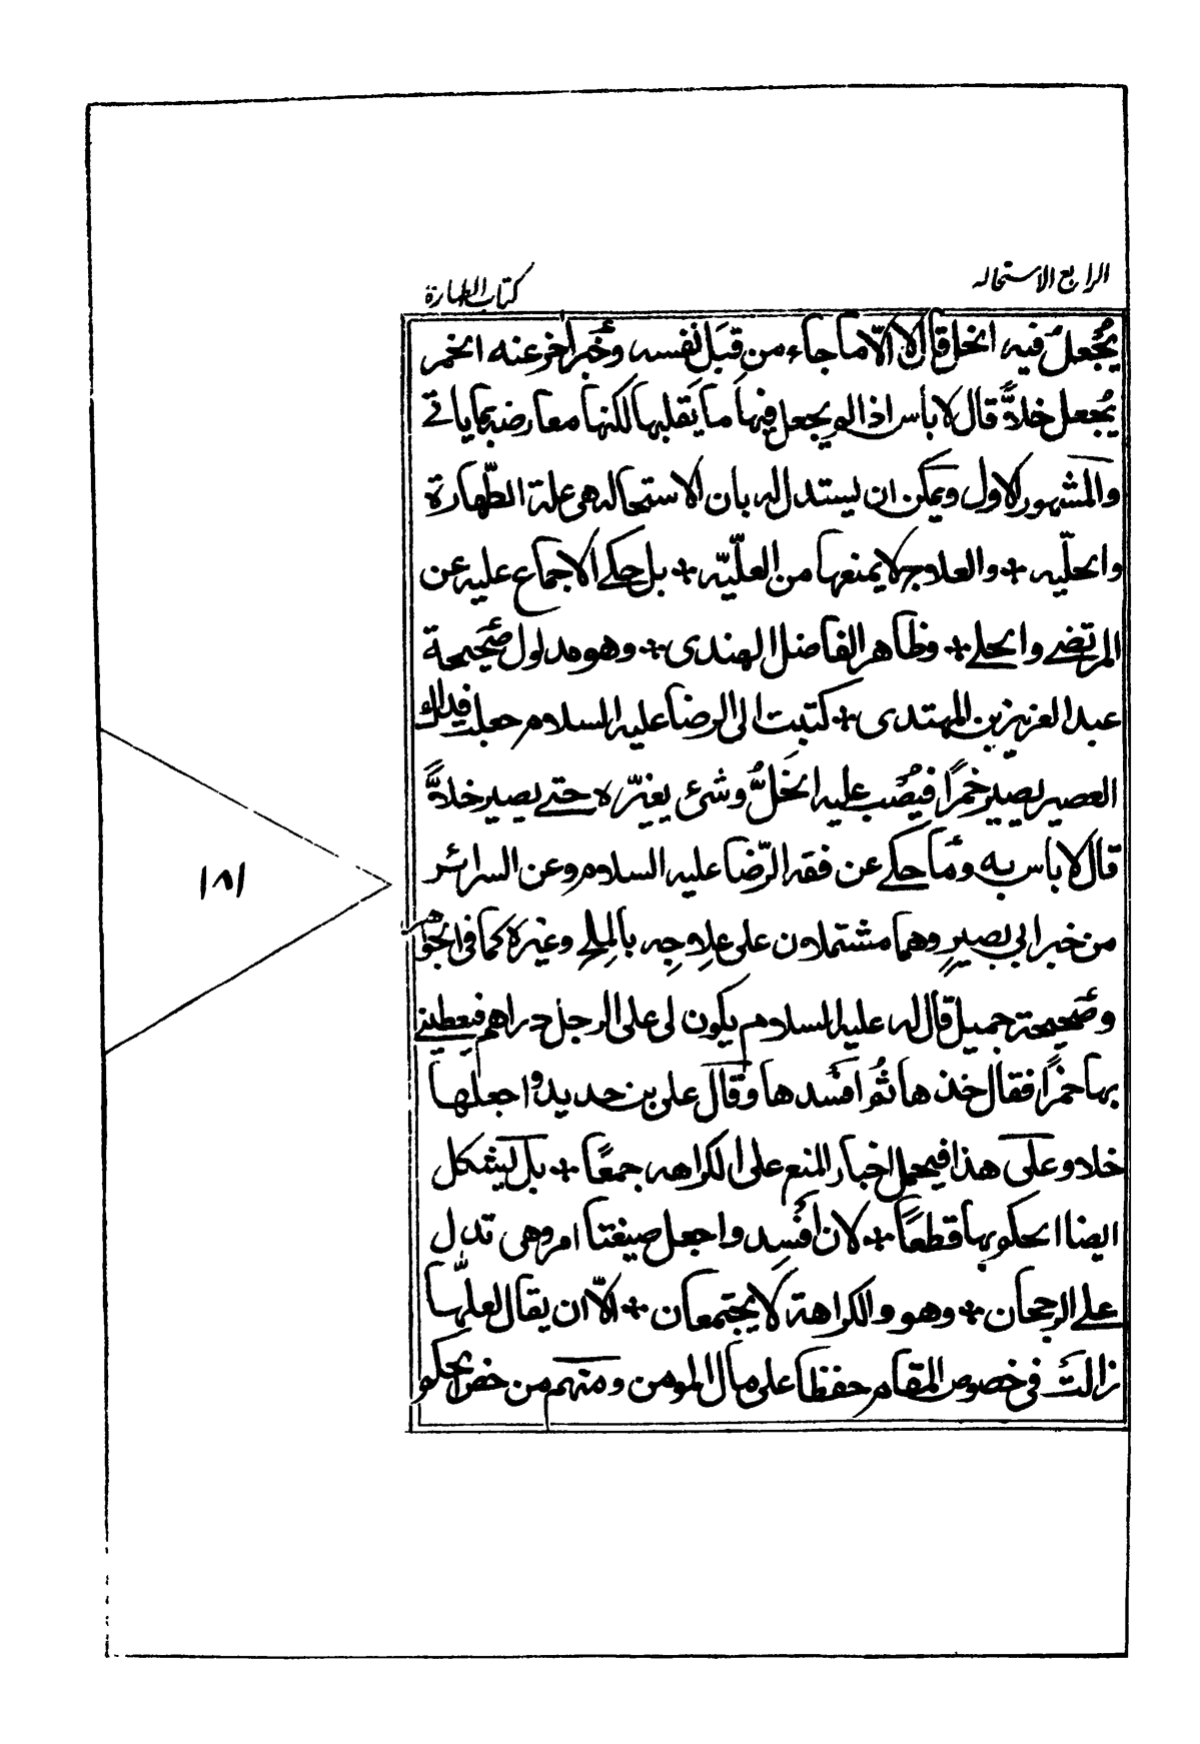 الرابع الاستحاله
كتاب الطهارة
يُجعلُ فيه الخل قال لا الّا ما جاء من قِبَل نفسه وخبر اخر عنه الخمر
يُجعل خلاًّ قال لا بأس اذا لم يجعل فيها ما يقلبها لكنها معارضة بما ياتے
والمشهور الاول ويمكن ان يستدل له بان الاستحاله هي علة الطّهارة
والحلّيه * والعلاج لا يمنعها من العلّيّه * بل حكے الاجماع عليه عن
المرتضے والحلے * وظاهر الفاضل الهندي * وهو مدلول صحيحة
عبد العزيز بن المهتدى * كتبت الى الرضا عليه السلام جعلت فداك
العصير يصير خمرًا فيُصَب عليه الخَلُّ وشئ يغيّره حتے يصير خلاًّ
قال لا باس به وما حكے عن فقه الرّضا عليه السلام وعن السرائر
من خبر ابي بصيرٍ وهما مشتملان على علاجِه بالمِلح وغيره كما في الجواهر
وصحيحة جميل قال له عليه السلام يكون لى على الرجل دراهم فيعطينے
بها خمرًا فقال خذها ثُم افسدها وقال على بن حديد واجعلها
خلا وعلى هذا فيحمل اخبار المنع على الكراهه جمعًا * بل يشكل
ايضا الحكم بها قطعًا * لان اَفسِد واجعل صيغتا امر وهي تدل
علے الرجحان * وهو والكراهة لا يجتمعان * الاّ ان يقال لعلّها
زالت في خصوص المقام حفظا على مال المومن ومنهم من خص الحكم
١٨١